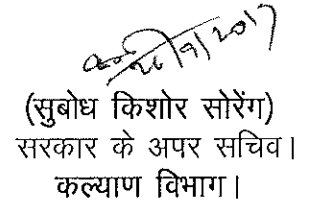 26/9/2017
(सुबोध किशोर सोरेंग)
सरकार के अपर सचिव।
कल्याण विभाग।